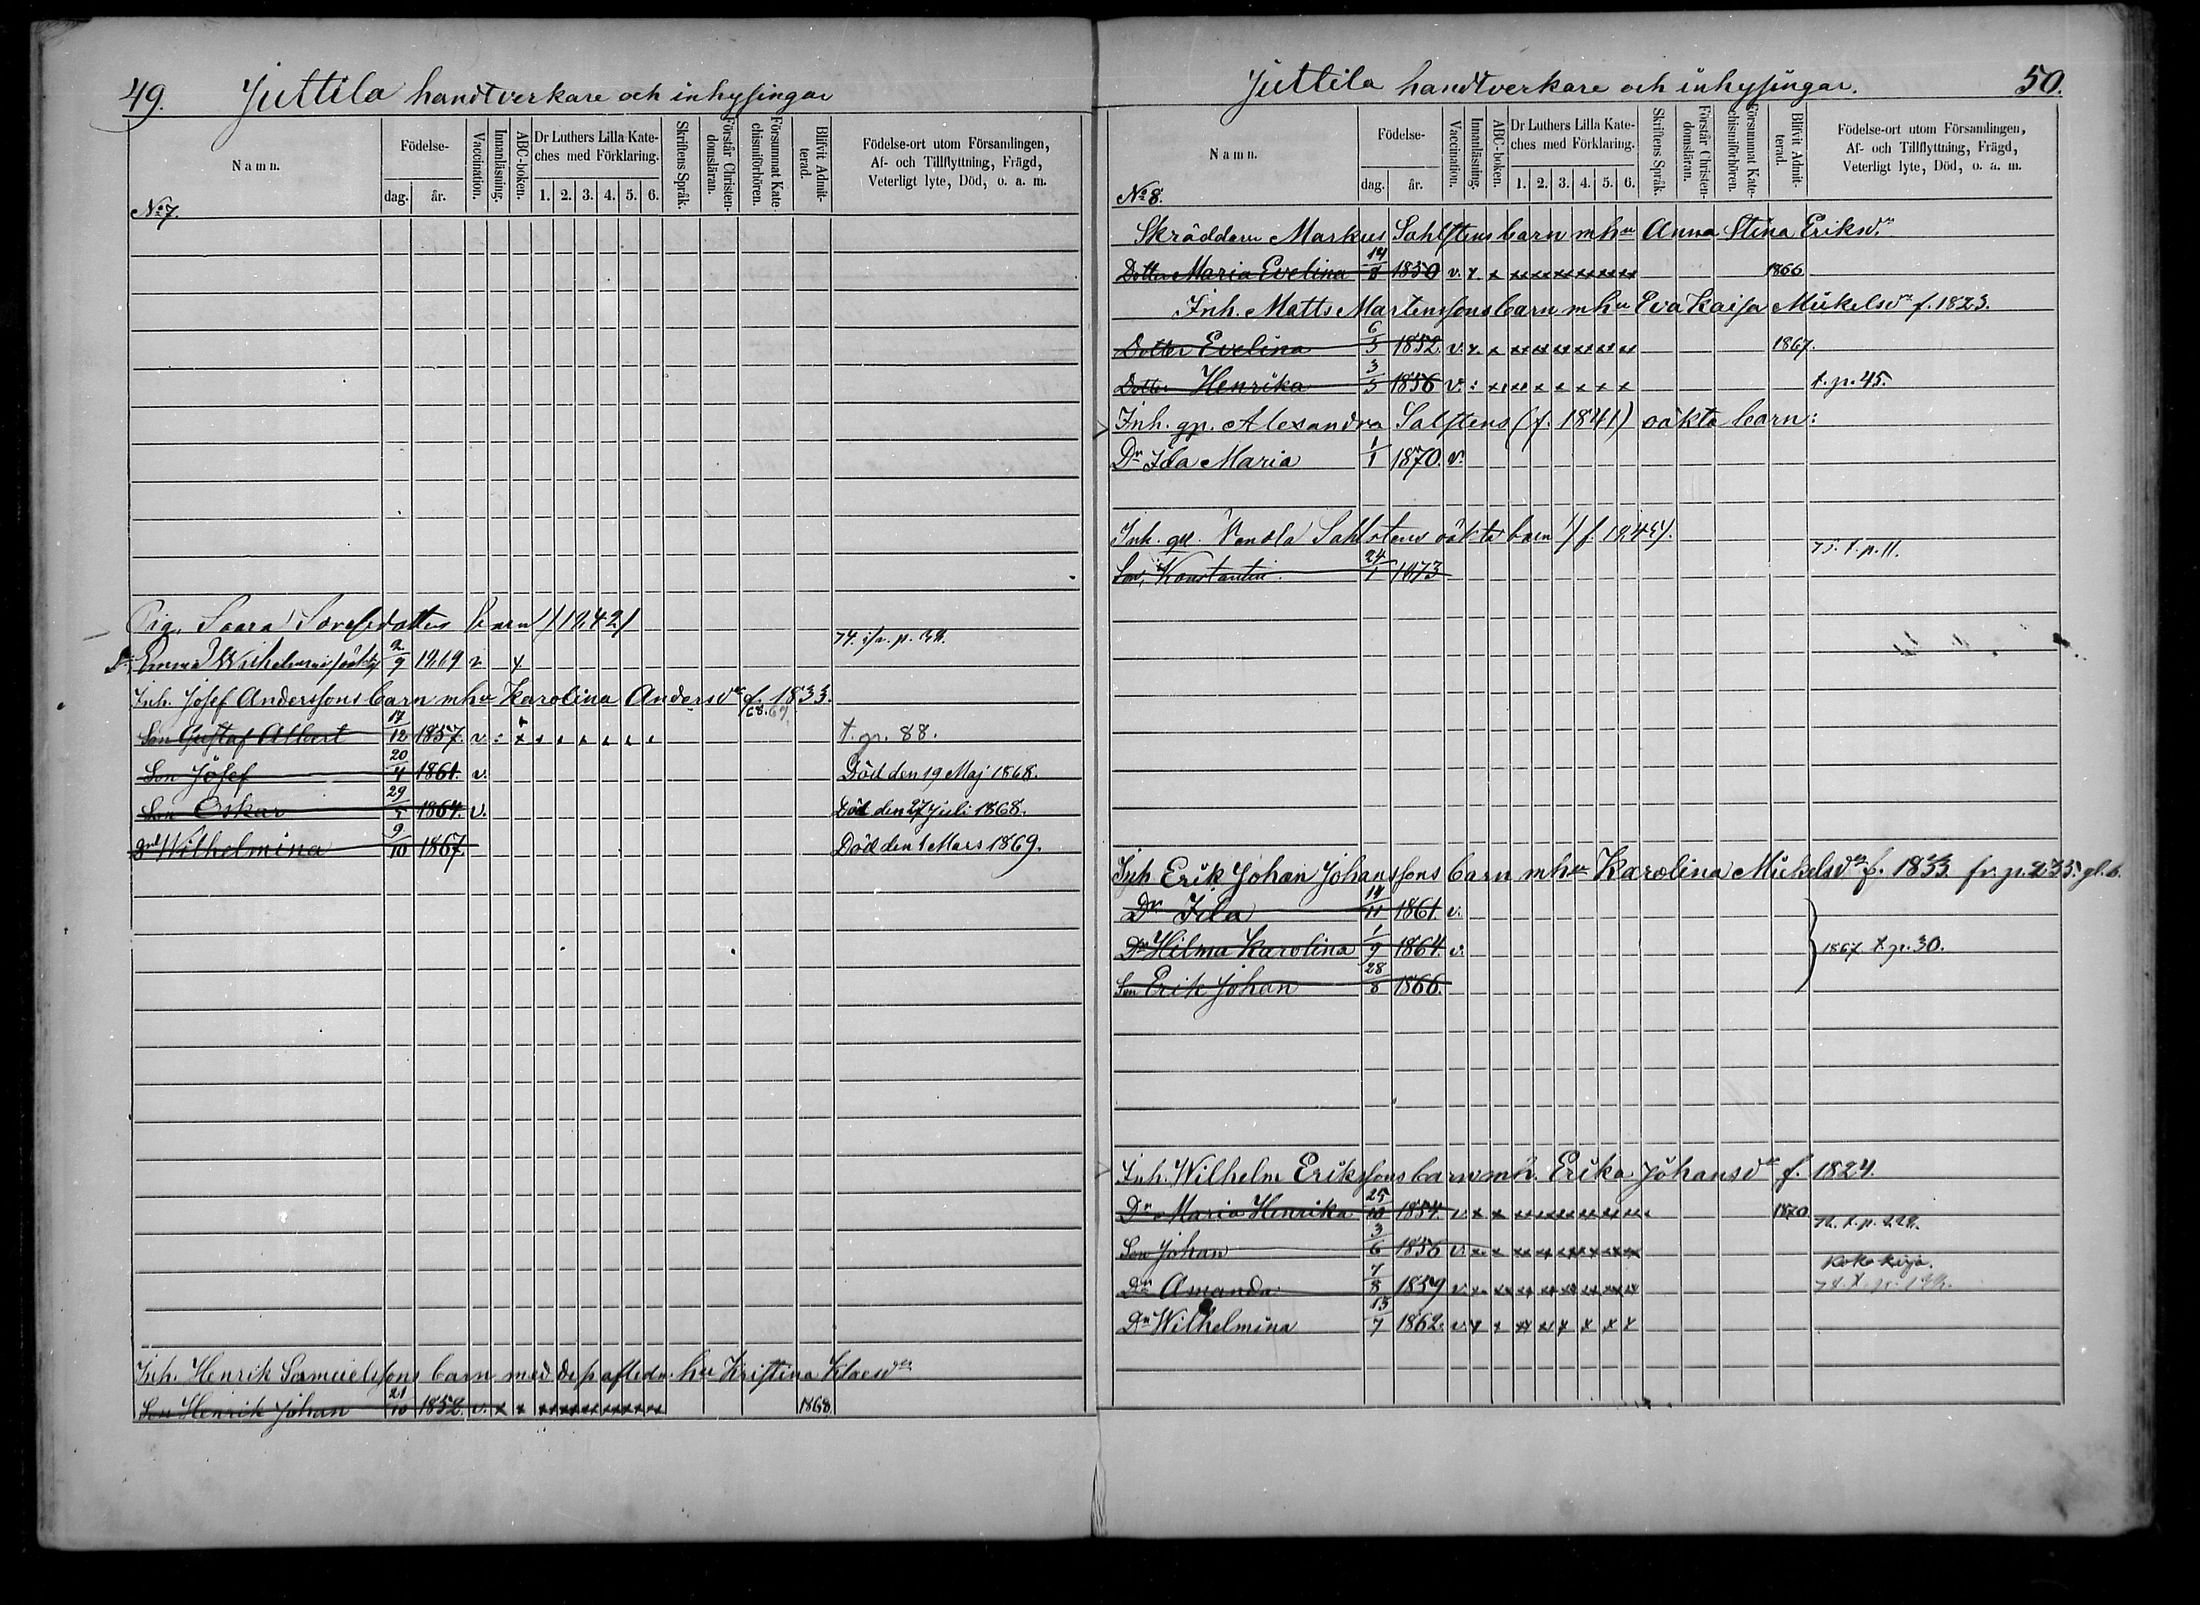 49. Juttila handtverkare och inhysingar
Namn. Födelse- dag. år. Vaccination. Innanläsning. ABC-boken. Dr Luthers Lilla Kateches med Förklaring. 1. 2. 3. 4. 5. 6. Skriftens Språk. Förstår Christendomsläran. Försummat Katechismiförhören. Blifvit Admitterad. Födelse-ort utom Församlingen, Af- och Tillflyttning, Frägd, Veterligt lyte, Död, o. a. m.
No 7.
Pig. Saara barn
Emma
Inh. Josef Anderssons barn m hu Karolina Andersdr f. 1833.
Son Gustaf Albert 17/12 1857. v. t. p. 88.
Son Josef 20/4 1861. v. Död den 19 Maj 1868.
Son Oskar 29/5 1864. v. Död den 27 Juli 1868.
Dr Wilhelmina 9/10 1867. Död den 1 Mars 1869.
Inh. Henrik Samuelssons barn med dess afledn. hu Kristina Klasdr
Son Henrik Johan 21/10 1852. v. x x xx xx xx xx xx xx 1868
Juttila handtverkare och inhysingar. 50.
Namn. Födelse- dag. år. Vaccination. Innanläsning. ABC-boken. Dr Luthers Lilla Kateches med Förklaring. 1. 2. 3. 4. 5. 6. Skriftens Språk. Förstår Christendomsläran. Försummat Katechismiförhören. Blifvit Admitterad. Födelse-ort utom Församlingen, Af- och Tillflyttning, Frägd, Veterligt lyte, Död, o. a. m.
No 8.
Skräddare Markus Sahlstens barn m hu Anna Stina Eriksdr
Dotter Maria Evelina 14/8 1850 v. x x xx xx xx xx xx xx 1866
Inh. Matts Martenssons barn m hu Eva Kaisa Mickelsdr f. 1823.
Dotter Evelina 6/5 1852. v. x. x xx xx xx xx xx xx 1867.
Dotter Henrika 3/5 1856 v. : x xx x x x x x t. p. 45.
Inh. gp. Alexandra Salstens (f. 1841) oäkta barn:
Dr Ida Maria 1/1 1870. v.
Inh. Vendla Sahlstens oäkta barn
Son, Konstantin. 24/1 1873 75. t. p. 11.
Inh Erik Johan Johanssons barn m hu Karolina Mickelsdr f. 1833 fr. p. 235. gl. b.
Dr Ida 14/11 1861. v.
Dr Hilma Karolina 1/9 1864. v. 1867 t. p. 30.
Son Erik Johan 28/8 1866.
Inh. Wilhelm Erikssons barn m h. Erika Johansdr f. 1824.
Dr Maria Henrika 25/10 1854. v. x x xx xx xx xx xx xx 1870
Son Johan 3/6 1856 v. x x xx xx xx xx xx xx
Dr Amanda 7/8 1859 v. x x xx xx xx xx xx xx koko kirja.
Dr Wilhelmina 13/7 1862. v. x x xx xx x x x x